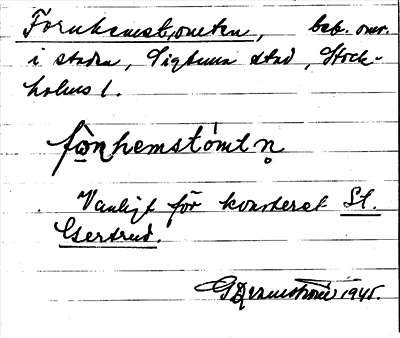 Fornhemstomten, beb. omr.
i staden, Sigtuna stad, Stock-
holms l.
fo̠nhemstomtn̥
Vanligt för kvarteret St.
Gertrud.
1945.